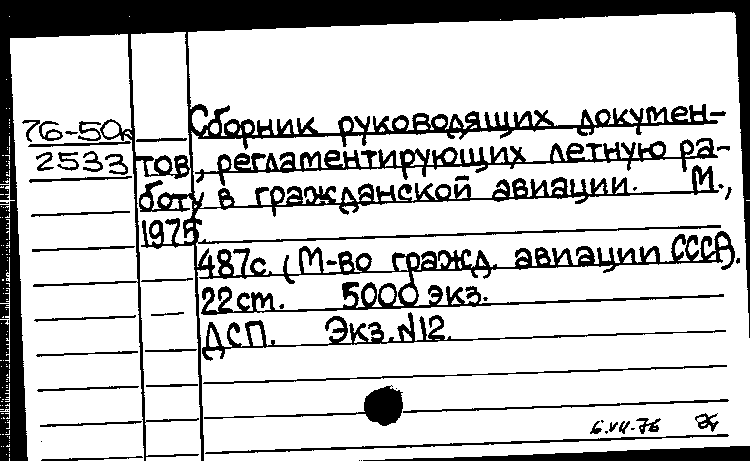 76-50к Сборник руководящих докумен-
2533 тов, регламентирующих летную ра-
боту в гражданской авиации. М.,
1975.
487с. (М-во гражд. авиации СССР).
22ст. 5000 экз.
ДСП. Экз.N12.
6.VII-76